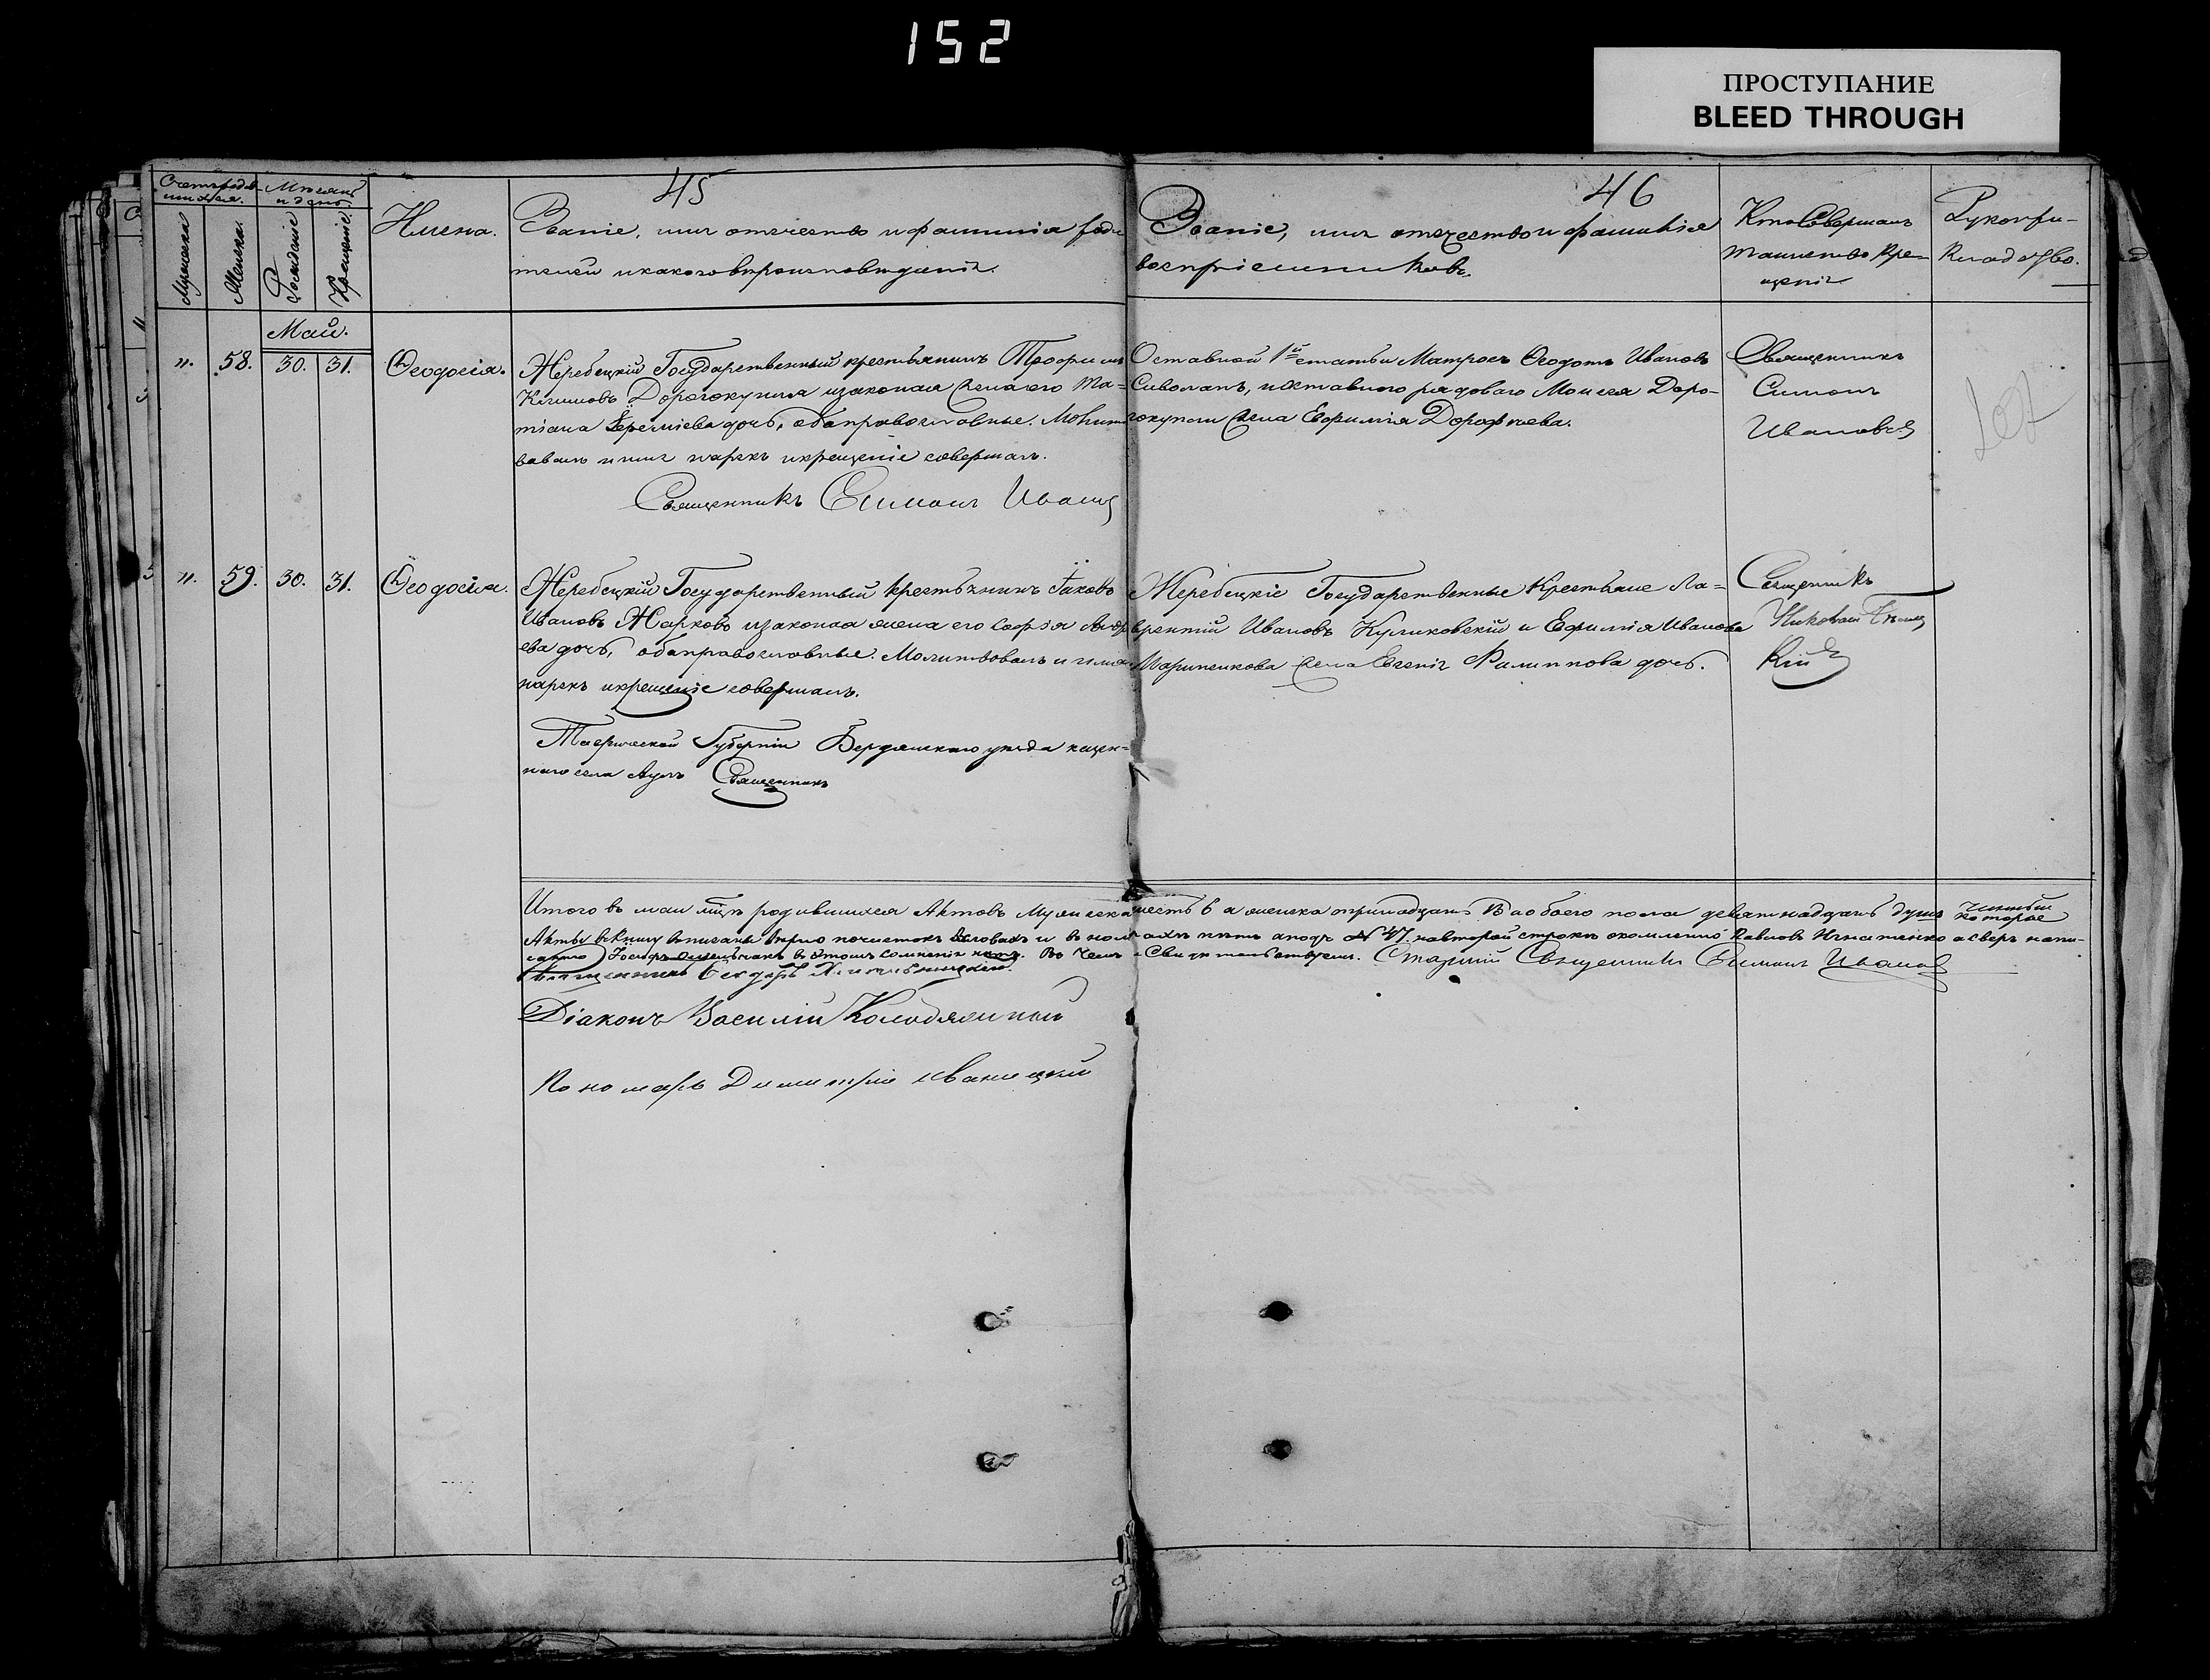 152
ПРОСТУПАНИЕ
BLEED THROUGH
45
46
Мѣсяцъ и день.
Мужеска
Женска.
Рожденіе
Крещеніе.
Имена.
Званіе, имя отечество и фамилія роди-
телей и какого вѣроисповѣданія.
Званіе, имя отечество и фамилія
воспріемниковъ.
Кто Совершалъ
таинство Кре-
щенія
Рукопри-
кладство.
Май.
58. 30. 31. Ѳеодосія.
Жеребецкій Государственный крестьянинъ Трофимъ
Дорогокупля и законная жена его Та-
тіана Іереміева дочь, оба православные. Молитво-
валъ и имя нарекъ и крещеніе совершалъ.
Священникъ Симонъ Ивановъ
Оставной 1й статьи Матросъ Ѳеодотъ Ивановъ
Сиволапъ, и оставного рядоваго Моисея Доро-
гокупли жена Евфимія Дорофѣева.
Священникъ
Симонъ
Ивановъ
59. 30. 31. Ѳеодосія.
Жеребецкій Государственный крестьянинъ Іаковъ
Ивановъ Жарковъ и законная жена его Софія Андре-
ева дочь, оба православные. Молитвовалъ и имя
нарекъ и крещеніе совершалъ.
Таврической Губерніи Бердянскаго уѣзда казен-
наго села Священникъ
Жеребецкіе Государственные Крестьяне Ла-
врентій Ивановъ Куликовскій и Ефимія Иванова
жена Евгенія Филиппова дочь.
Священникъ
Николай
кій
Итого въ маи мцѣ родившихся Актовъ Мужеска шесть 6 а женска тринадцать 13 а обоего пола девятнадцать душъ
Акты въ Книгу вписаны вѣрно и въ пять а подъ № 47 на второй строкѣ Павловъ Игнатенко а сверхъ напи-
сано въ этомъ сомнѣнія нѣтъ. Въ чемъ и Свидѣтельствуемъ. Старшій Священникъ Симонъ Ивановъ
Священникъ Ѳеодоръ
Діаконъ Василій Колодяжной
Пономарь Димитрій Иваницкій